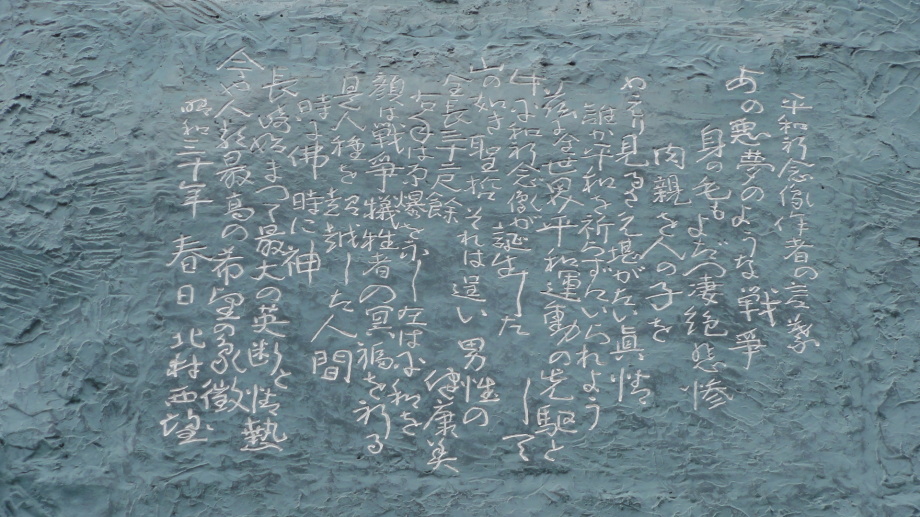 平和祈念像作者の言葉
あの悪夢のような戦争
身の毛もよだつ凄絶悲惨
肉親を人の子を
かえり見るさえ堪がたい真情
誰か平和を祈らずにいられよう
茲に全世界平和運動の先駆として
平和祈念像が誕生した
山の如き聖哲 それは逞い男性の健康美
全長三十二尺余
右手は原爆を示し左は平和を
顔は戦争犠牲者の冥福を祈る
是人種を超越した人間
時に佛 時に神
長崎始まつて最大の英断と情熱
今や人類最高の希望の象徴
昭和三十年 春日 北村西望